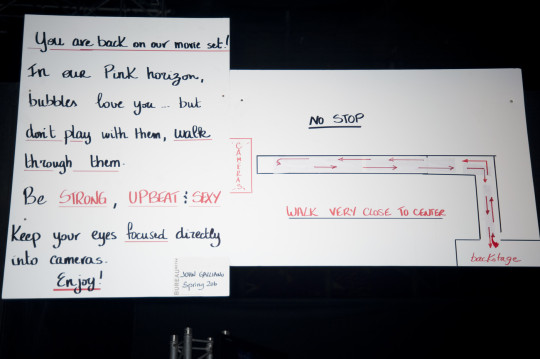 You are back on our movie set!
In our Pink horizon,
bubbles love you... but
don't play with them, walk
through them.
Be STRONG, UPBEAT & SEXY
Keep your eyes focused directly
into cameras.
Enjoy!
JOHN GALLIANO
Spring 2016
CAMERAS
NO STOP
WALK VERY CLOSE TO CENTER
backstage